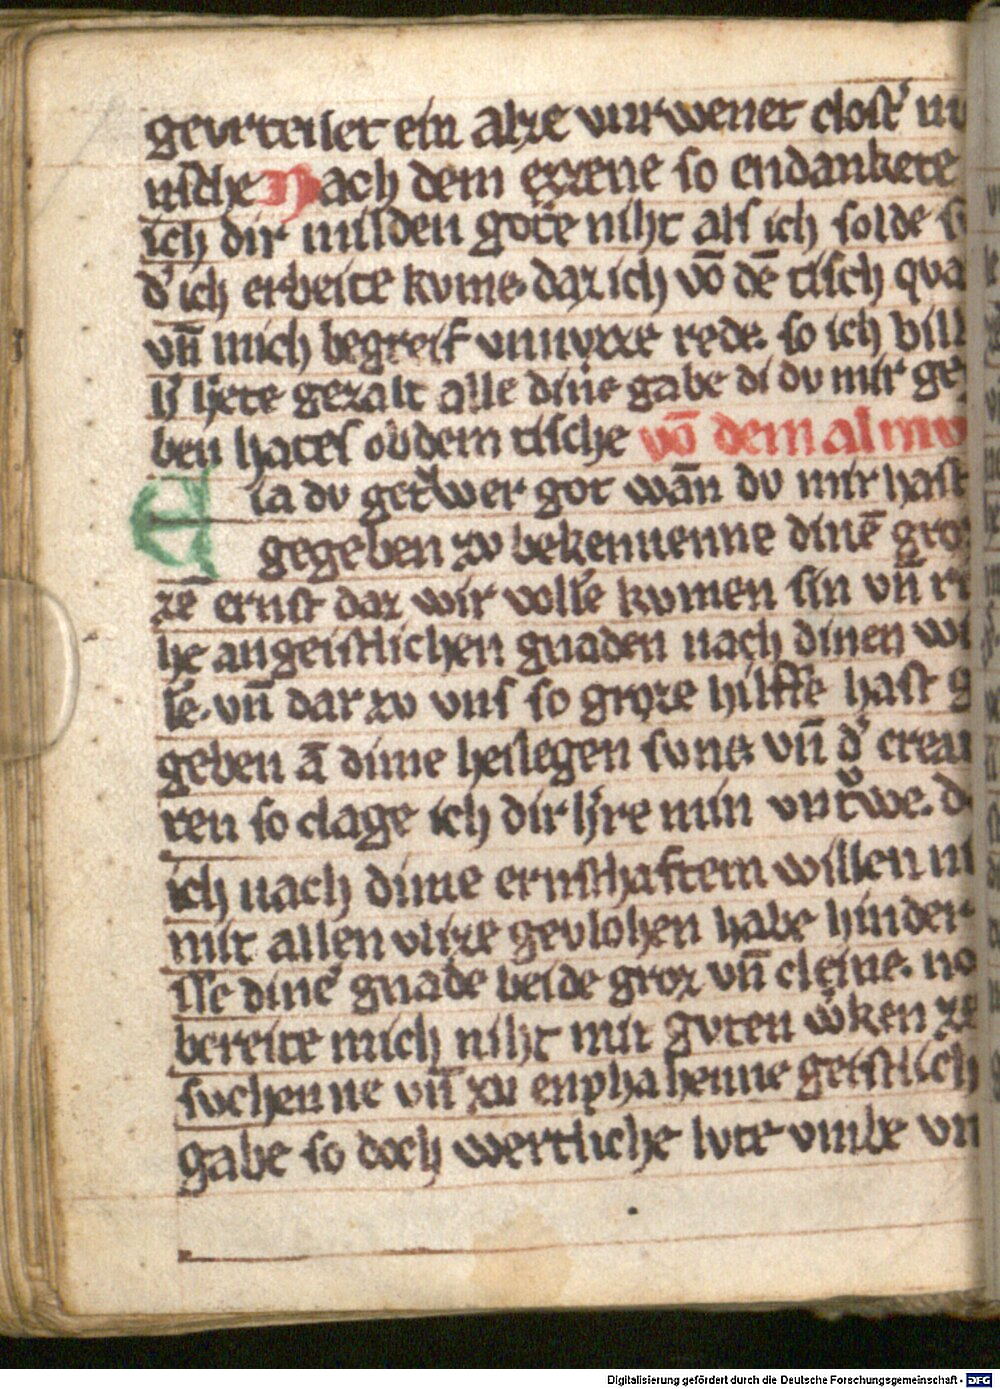 gevrteilet ein alze vurwener cloſt' m
niſche Nach dem ezzene ſo endankete
ich dir milden gote niht alſ ich ſolde
d' ich erbeite kvme. daz ich vō dē tiſch qua
vn̄ mich begreif vnnvzze rede. ſo ich bill
h' hete gezalt alle dine gabe di dv mir ge
ben hateſ ob dem tiſche vō dem almv
Eia dv getwer got wān dv mir haſt
gegeben zv bekennenne dinē gro
zē ernſt daz wir volle kvmen ſin vn̄ ri
he an geiſtlichen gnaden nach dinen wi
le. vn̄ dar zv vnſ ſo groze hilffe haſt g
geben ā dime heilegen ſvne. vn̄ d' creau
ren ſo clage ich dir h're min vntwe. d
ich nach dime ernſthaftem willen ni
mit allen vlize gevlohen habe hinder
iſſe dine' gnade beide groz vn̄ cleine. no
bereite mich niht mit gvten w'ken ze
ſvchenne vn̄ zu enphahenne geiſtlich
gabe ſo doch wertliche lvte vmbe vn